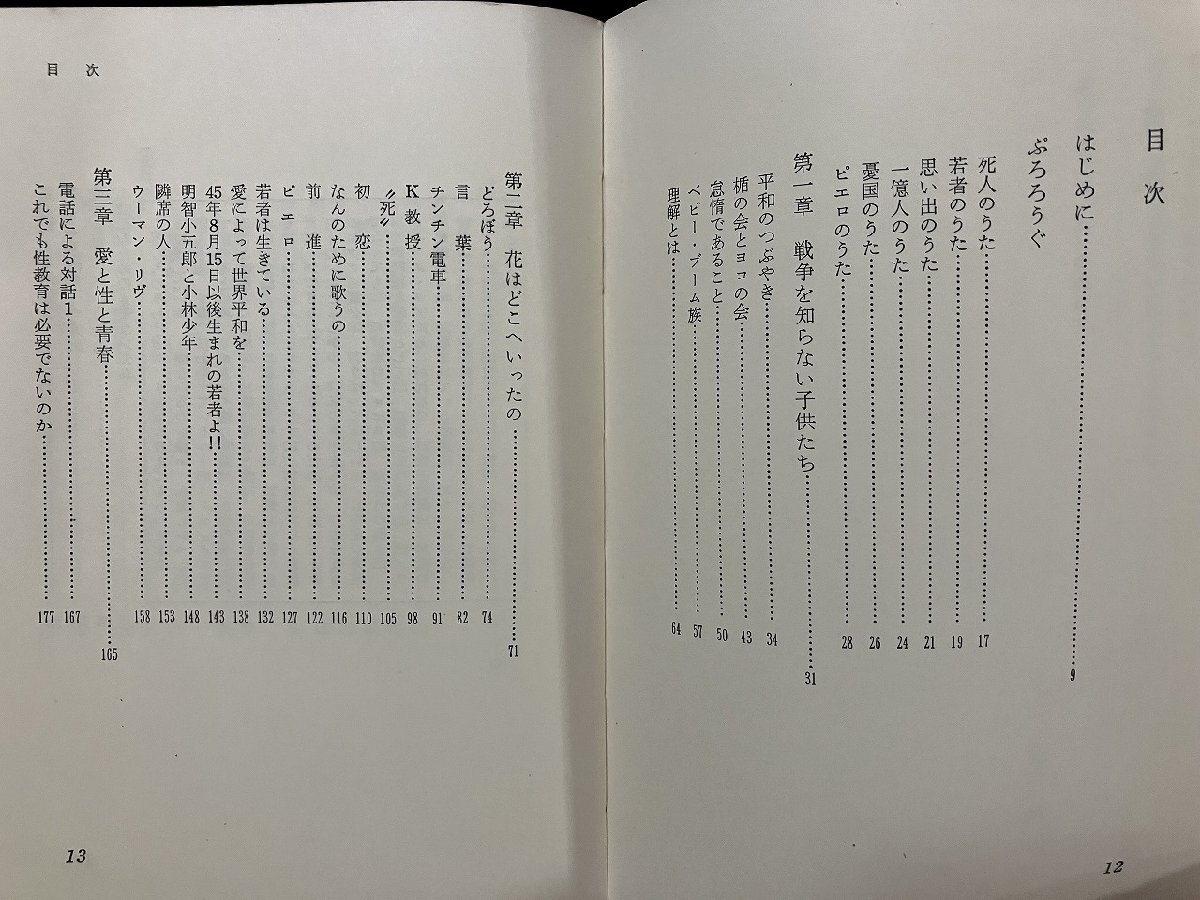 目次
はじめに……9
ぷろろうぐ
死人のうた……17
若者のうた……19
思い出のうた……21
一億人のうた……24
憂国のうた……26
ピエロのうた……28
第一章 戦争を知らない子供たち……31
平和のつぶやき……34
楯の会とヨコの会……43
怠惰であること……50
ベビー・ブーム族……57
理解とは……64
12
目次
第二章 花はどこへいったの……71
どろぼう……74
言葉……82
チンチン電車……91
K教授……98
〝死〟……105
初恋……110
なんのために歌うの……116
前進……122
ピエロ……127
若者は生きている……132
愛によって世界平和を……138
45年8月15日以後生まれの若者よ!!……143
明智小五郎と小林少年……148
隣席の人……153
ウーマン・リヴ……158
第三章 愛と性と青春……165
電話による対話1……167
これでも性教育は必要でないのか……177
13